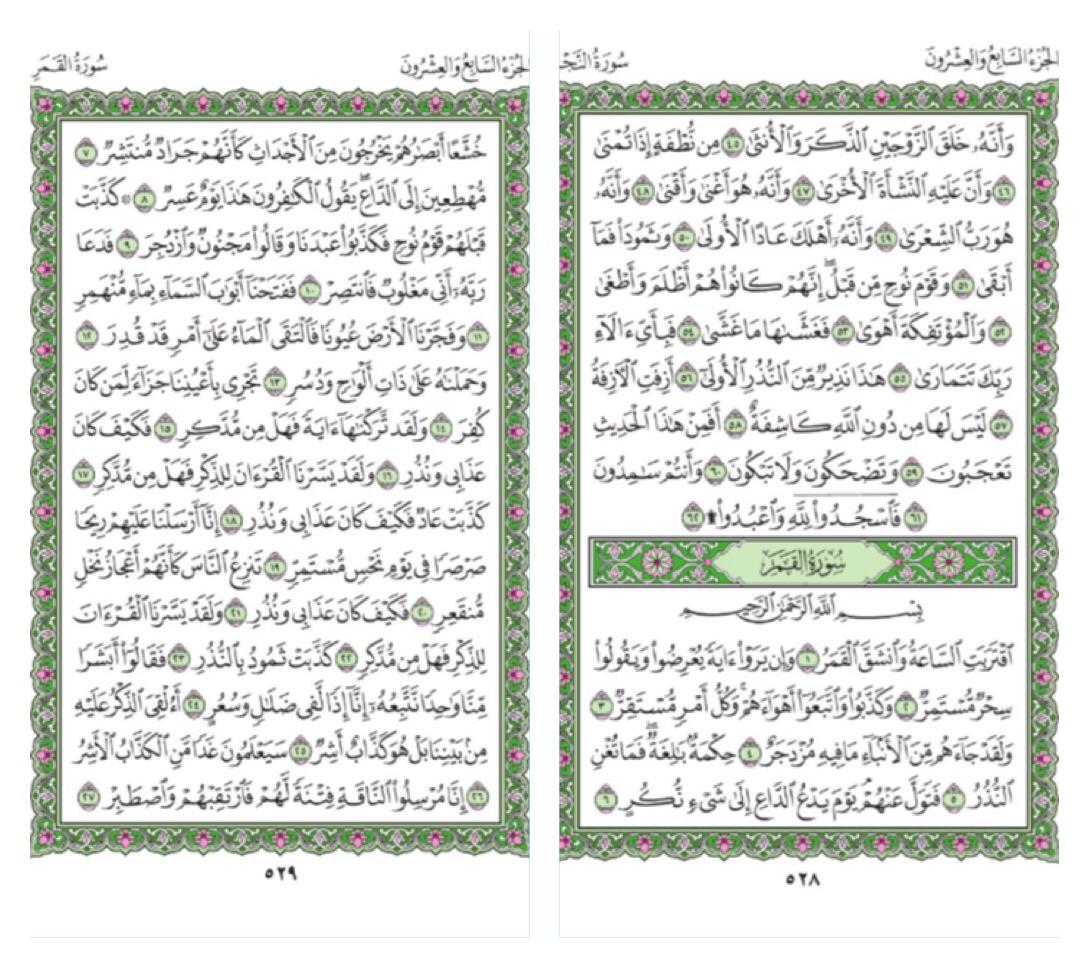 الجزء السابع والعشرون
سورة النج
وَأَنَّهُۥ خَلَقَ ٱلزَّوْجَيْنِ ٱلذَّكَرَ وَٱلْأُنثَىٰ ٤٥ مِن نُّطْفَةٍ إِذَا تُمْنَىٰ
٤٦ وَأَنَّ عَلَيْهِ ٱلنَّشْأَةَ ٱلْأُخْرَىٰ ٤٧ وَأَنَّهُۥ هُوَ أَغْنَىٰ وَأَقْنَىٰ ٤٨ وَأَنَّهُۥ
هُوَ رَبُّ ٱلشِّعْرَىٰ ٤٩ وَأَنَّهُۥٓ أَهْلَكَ عَادًا ٱلْأُولَىٰ ٥٠ وَثَمُودَا۟ فَمَآ
أَبْقَىٰ ٥١ وَقَوْمَ نُوحٍ مِّن قَبْلُ ۖ إِنَّهُمْ كَانُوا۟ هُمْ أَظْلَمَ وَأَطْغَىٰ
٥٢ وَٱلْمُؤْتَفِكَةَ أَهْوَىٰ ٥٣ فَغَشَّىٰهَا مَا غَشَّىٰ ٥٤ فَبِأَىِّ ءَالَآءِ
رَبِّكَ تَتَمَارَىٰ ٥٥ هَٰذَا نَذِيرٌ مِّنَ ٱلنُّذُرِ ٱلْأُولَىٰٓ ٥٦ أَزِفَتِ ٱلْـَٔازِفَةُ
٥٧ لَيْسَ لَهَا مِن دُونِ ٱللَّهِ كَاشِفَةٌ ٥٨ أَفَمِنْ هَٰذَا ٱلْحَدِيثِ
تَعْجَبُونَ ٥٩ وَتَضْحَكُونَ وَلَا تَبْكُونَ ٦٠ وَأَنتُمْ سَٰمِدُونَ
٦١ فَٱسْجُدُوا۟ لِلَّهِ وَٱعْبُدُوا۟ ۩ ٦٢
سُورَةُ القَمَرِ
بِسْمِ ٱللَّهِ ٱلرَّحْمَٰنِ ٱلرَّحِيمِ
ٱقْتَرَبَتِ ٱلسَّاعَةُ وَٱنشَقَّ ٱلْقَمَرُ ١ وَإِن يَرَوْا۟ ءَايَةً يُعْرِضُوا۟ وَيَقُولُوا۟
سِحْرٌ مُّسْتَمِرٌّ ٢ وَكَذَّبُوا۟ وَٱتَّبَعُوٓا۟ أَهْوَآءَهُمْ ۚ وَكُلُّ أَمْرٍ مُّسْتَقِرٌّ ٣
وَلَقَدْ جَآءَهُم مِّنَ ٱلْأَنۢبَآءِ مَا فِيهِ مُزْدَجَرٌ ٤ حِكْمَةٌۢ بَٰلِغَةٌ ۖ فَمَا تُغْنِ
ٱلنُّذُرُ ٥ فَتَوَلَّ عَنْهُمْ ۘ يَوْمَ يَدْعُ ٱلدَّاعِ إِلَىٰ شَىْءٍ نُّكُرٍ ٦
٥٢٨
الجزء السابع والعشرون
سورة القمر
خُشَّعًا أَبْصَٰرُهُمْ يَخْرُجُونَ مِنَ ٱلْأَجْدَاثِ كَأَنَّهُمْ جَرَادٌ مُّنتَشِرٌ ٧
مُّهْطِعِينَ إِلَى ٱلدَّاعِ ۖ يَقُولُ ٱلْكَٰفِرُونَ هَٰذَا يَوْمٌ عَسِرٌ ٨ ۞ كَذَّبَتْ
قَبْلَهُمْ قَوْمُ نُوحٍ فَكَذَّبُوا۟ عَبْدَنَا وَقَالُوا۟ مَجْنُونٌ وَٱزْدُجِرَ ٩ فَدَعَا
رَبَّهُۥٓ أَنِّى مَغْلُوبٌ فَٱنتَصِرْ ١٠ فَفَتَحْنَآ أَبْوَٰبَ ٱلسَّمَآءِ بِمَآءٍ مُّنْهَمِرٍ
١١ وَفَجَّرْنَا ٱلْأَرْضَ عُيُونًا فَٱلْتَقَى ٱلْمَآءُ عَلَىٰٓ أَمْرٍ قَدْ قُدِرَ ١٢
وَحَمَلْنَٰهُ عَلَىٰ ذَاتِ أَلْوَٰحٍ وَدُسُرٍ ١٣ تَجْرِى بِأَعْيُنِنَا جَزَآءً لِّمَن كَانَ
كُفِرَ ١٤ وَلَقَد تَّرَكْنَٰهَآ ءَايَةً فَهَلْ مِن مُّدَّكِرٍ ١٥ فَكَيْفَ كَانَ
عَذَابِى وَنُذُرِ ١٦ وَلَقَدْ يَسَّرْنَا ٱلْقُرْءَانَ لِلذِّكْرِ فَهَلْ مِن مُّدَّكِرٍ ١٧
كَذَّبَتْ عَادٌ فَكَيْفَ كَانَ عَذَابِى وَنُذُرِ ١٨ إِنَّآ أَرْسَلْنَا عَلَيْهِمْ رِيحًا
صَرْصَرًا فِى يَوْمِ نَحْسٍ مُّسْتَمِرٍّ ١٩ تَنزِعُ ٱلنَّاسَ كَأَنَّهُمْ أَعْجَازُ نَخْلٍ
مُّنقَعِرٍ ٢٠ فَكَيْفَ كَانَ عَذَابِى وَنُذُرِ ٢١ وَلَقَدْ يَسَّرْنَا ٱلْقُرْءَانَ
لِلذِّكْرِ فَهَلْ مِن مُّدَّكِرٍ ٢٢ كَذَّبَتْ ثَمُودُ بِٱلنُّذُرِ ٢٣ فَقَالُوٓا۟ أَبَشَرًا
مِّنَّا وَٰحِدًا نَّتَّبِعُهُۥٓ إِنَّآ إِذًا لَّفِى ضَلَٰلٍ وَسُعُرٍ ٢٤ أَءُلْقِىَ ٱلذِّكْرُ عَلَيْهِ
مِنۢ بَيْنِنَا بَلْ هُوَ كَذَّابٌ أَشِرٌ ٢٥ سَيَعْلَمُونَ غَدًا مَّنِ ٱلْكَذَّابُ ٱلْأَشِرُ
٢٦ إِنَّا مُرْسِلُوا۟ ٱلنَّاقَةِ فِتْنَةً لَّهُمْ فَٱرْتَقِبْهُمْ وَٱصْطَبِرْ ٢٧
٥٢٩